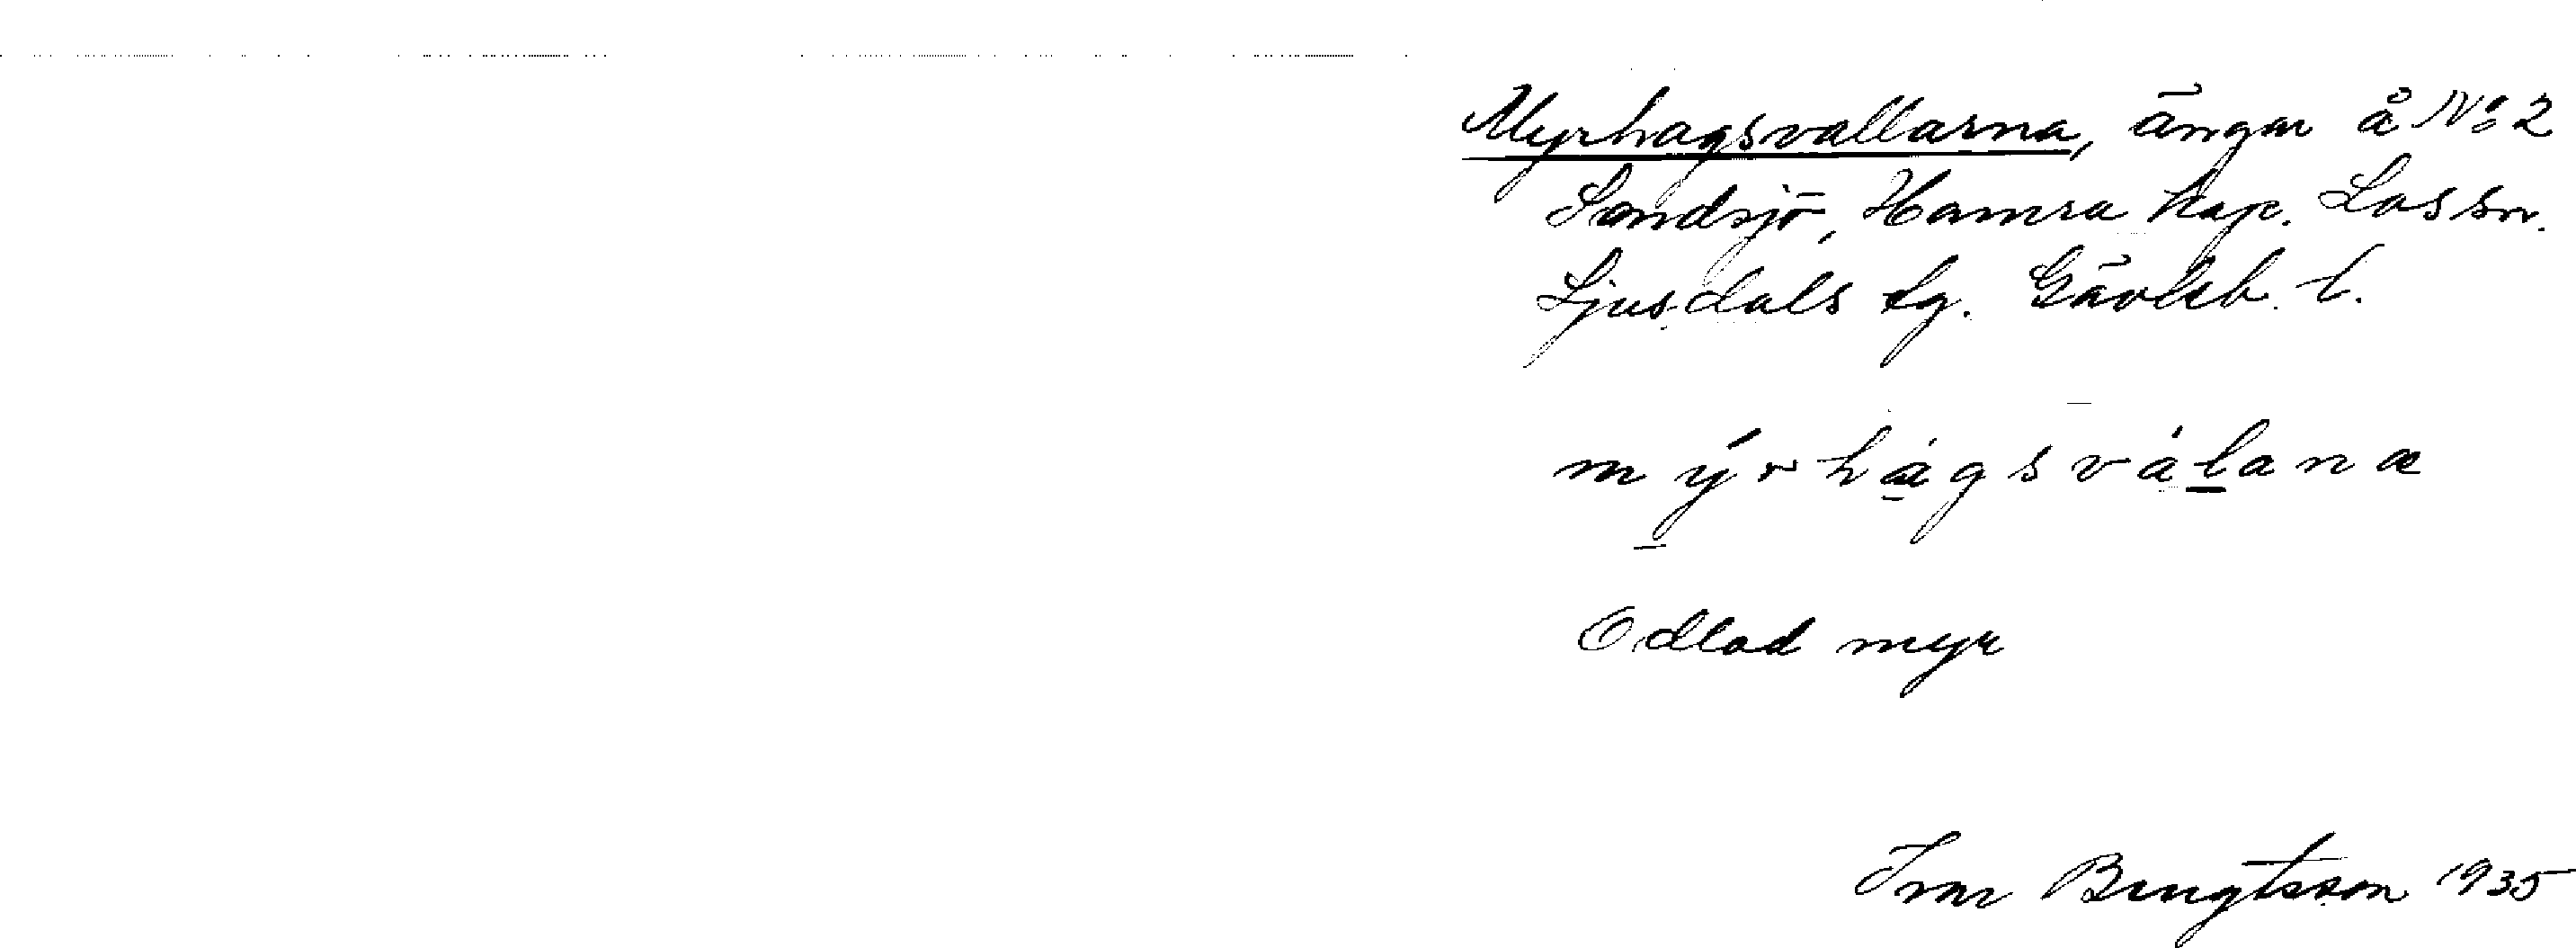 Myrhagsvallarna, ängar å No 2
Sandsjö, Hamra kap. Los sn.
Ljusdals tg. Gävleb. l.
mýrhágsválana
Odlad myr
Ivar Bengtsson 1935